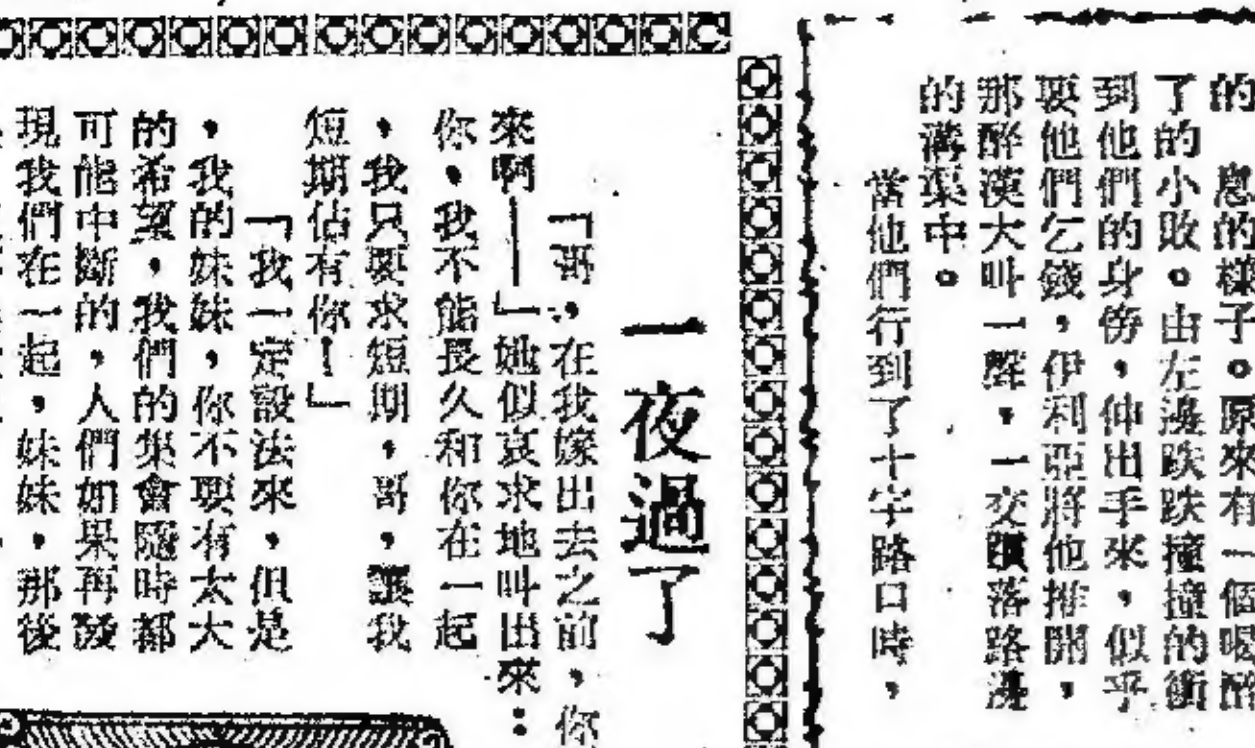 的　息的樣子。原來有一個喝醉
了的小敗。由左邊跌跌撞撞的衝
到他們的身傍，伸出手來，似乎
要他們乞錢，伊利亞將他推開，
那醉漢大叫一聲，一交躓落路邊
的溝渠中。
當他們行到了十字路口時，
一夜過了
「哥，在我嫁出去之前，你
來啊——」她似哀求地叫出來：
你，我不能長久和你在一起
，我只要求短期，哥，讓我
短期佔有你！」
「我一定設法來，但是
，我的妹妹，你不要有太大
的希望，我們的集會隨時都
可能中斷的，人們如果再發
現我們在一起，妹妹，那後